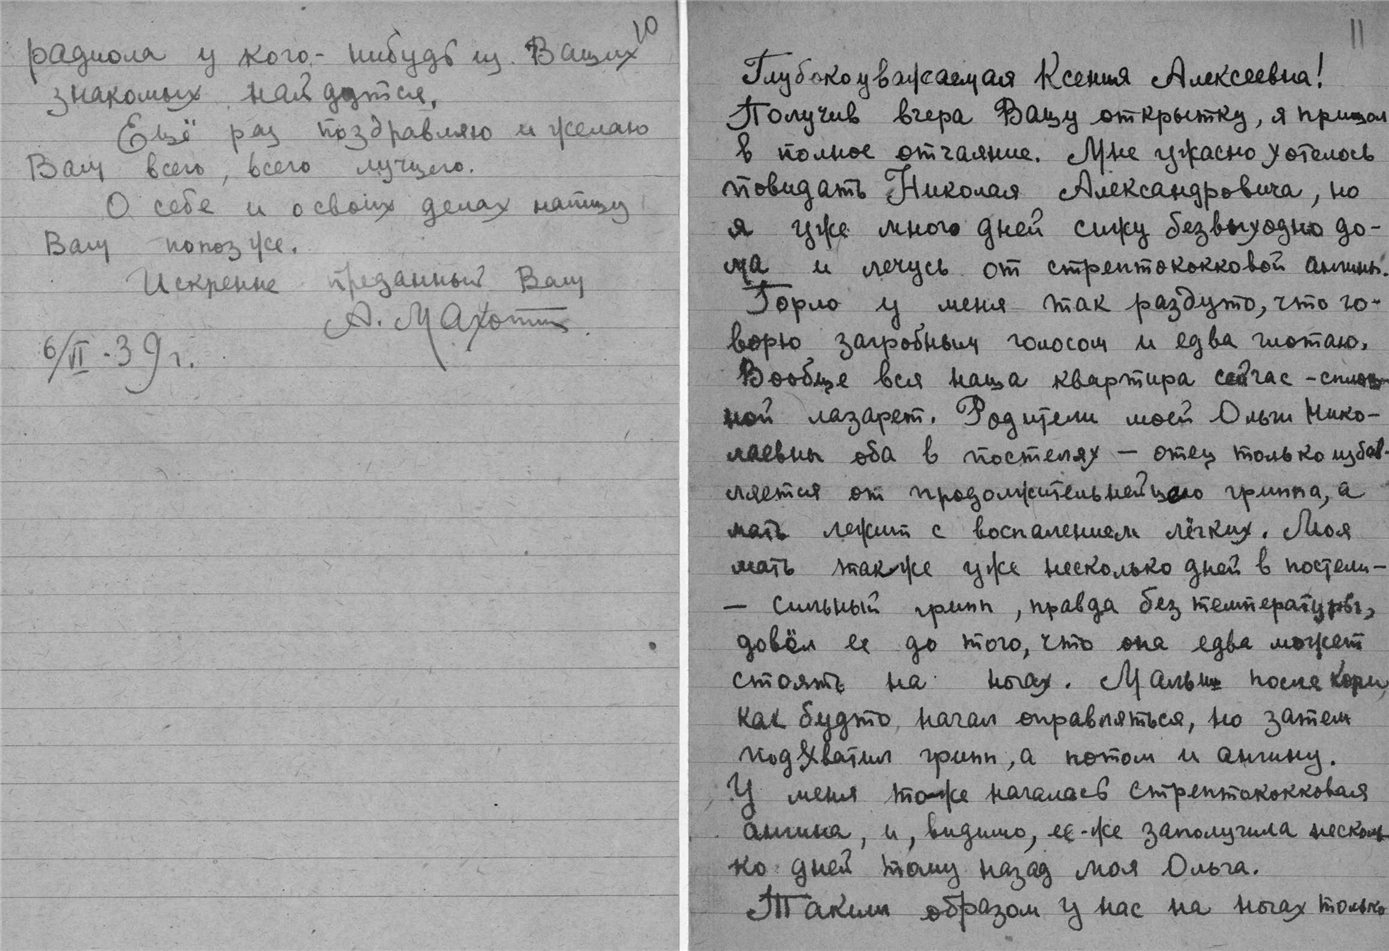 10
радиола у кого-нибудь из Ваших
знакомых найдутся.
Ещё раз поздравляю и желаю
Вам всего, всего лучшего.
О себе и о своих делах напишу
Вам попозже.
Искренне преданный Вам
А. Махотин
6/II-39г.
11
Глубокоуважаемая Ксения Алексеевна!
Получив вчера Вашу открытку, я пришол
в полное отчаяние. Мне ужасно хотелось
повидать Николая Александровича, но
я уже много дней сижу безвыходно до-
ма и лечусь от стрептококковой ангины.
Горло у меня так раздуто, что го-
ворю загробным голосом и едва глотаю.
Вообще вся наша квартира сейчас - сплош-
ной лазарет. Родители моей Ольги Нико-
лаевны оба в постелях — отец только избав-
ляется от продолжительнейшего гриппа, а
мать лежит с воспалением лёгких. Моя
мать также уже несколько дней в постели-
— сильный грипп, правда без температуры,
довёл ее до того, что она едва может
стоять на ногах. Малыш после кори,
как будто, начал оправляться, но затем
подхватил грипп, а потом и ангину.
У меня тоже началась стрептококковая
ангина, и, видимо, ее-же заполучила несколь-
ко дней тому назад моя Ольга.
Таким образом у нас на ногах только